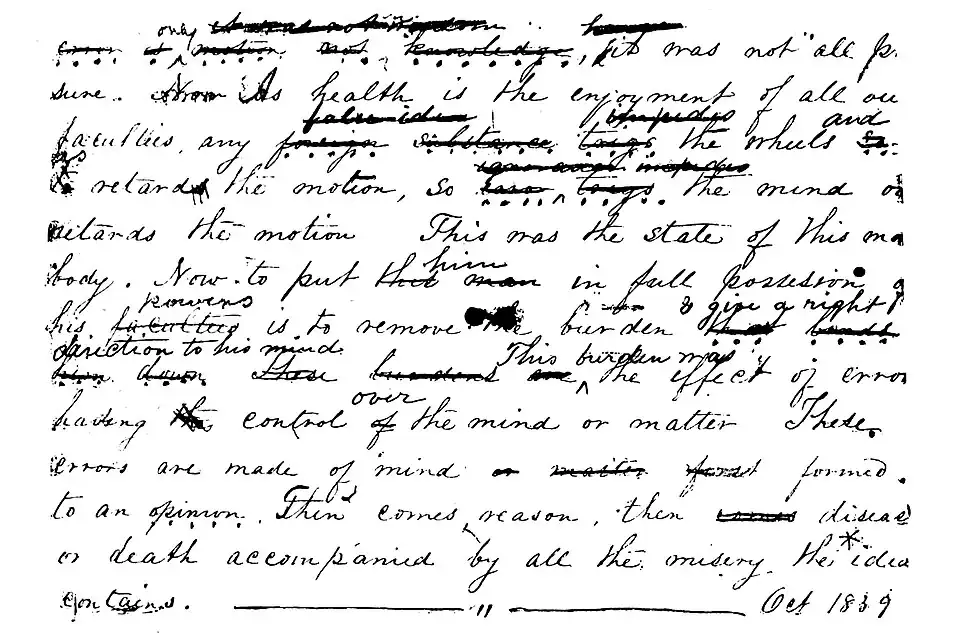 only it was not wisdom
error is motion not knowledge, it was not all p
sure. Now As health is the enjoyment of all ou
false idea impedes and
faculties, any foreign substance trigs the wheels
retards the motion, so trigs the mind o
ignorance impedes
retards the motion This was the state of this ma
body. Now to put this man in full possesion o
him
powers & give a right
his faculties is to remove the burden that binds
direction to his mind. This burden was
him down. These burdens are the effect of error
over
having control of the mind or matter These
errors are made of mind or matter first formed.
to an opinion. Then comes reason, then comes diseas
or death accompanied by all the misery the idea
contains. " Oct 1839